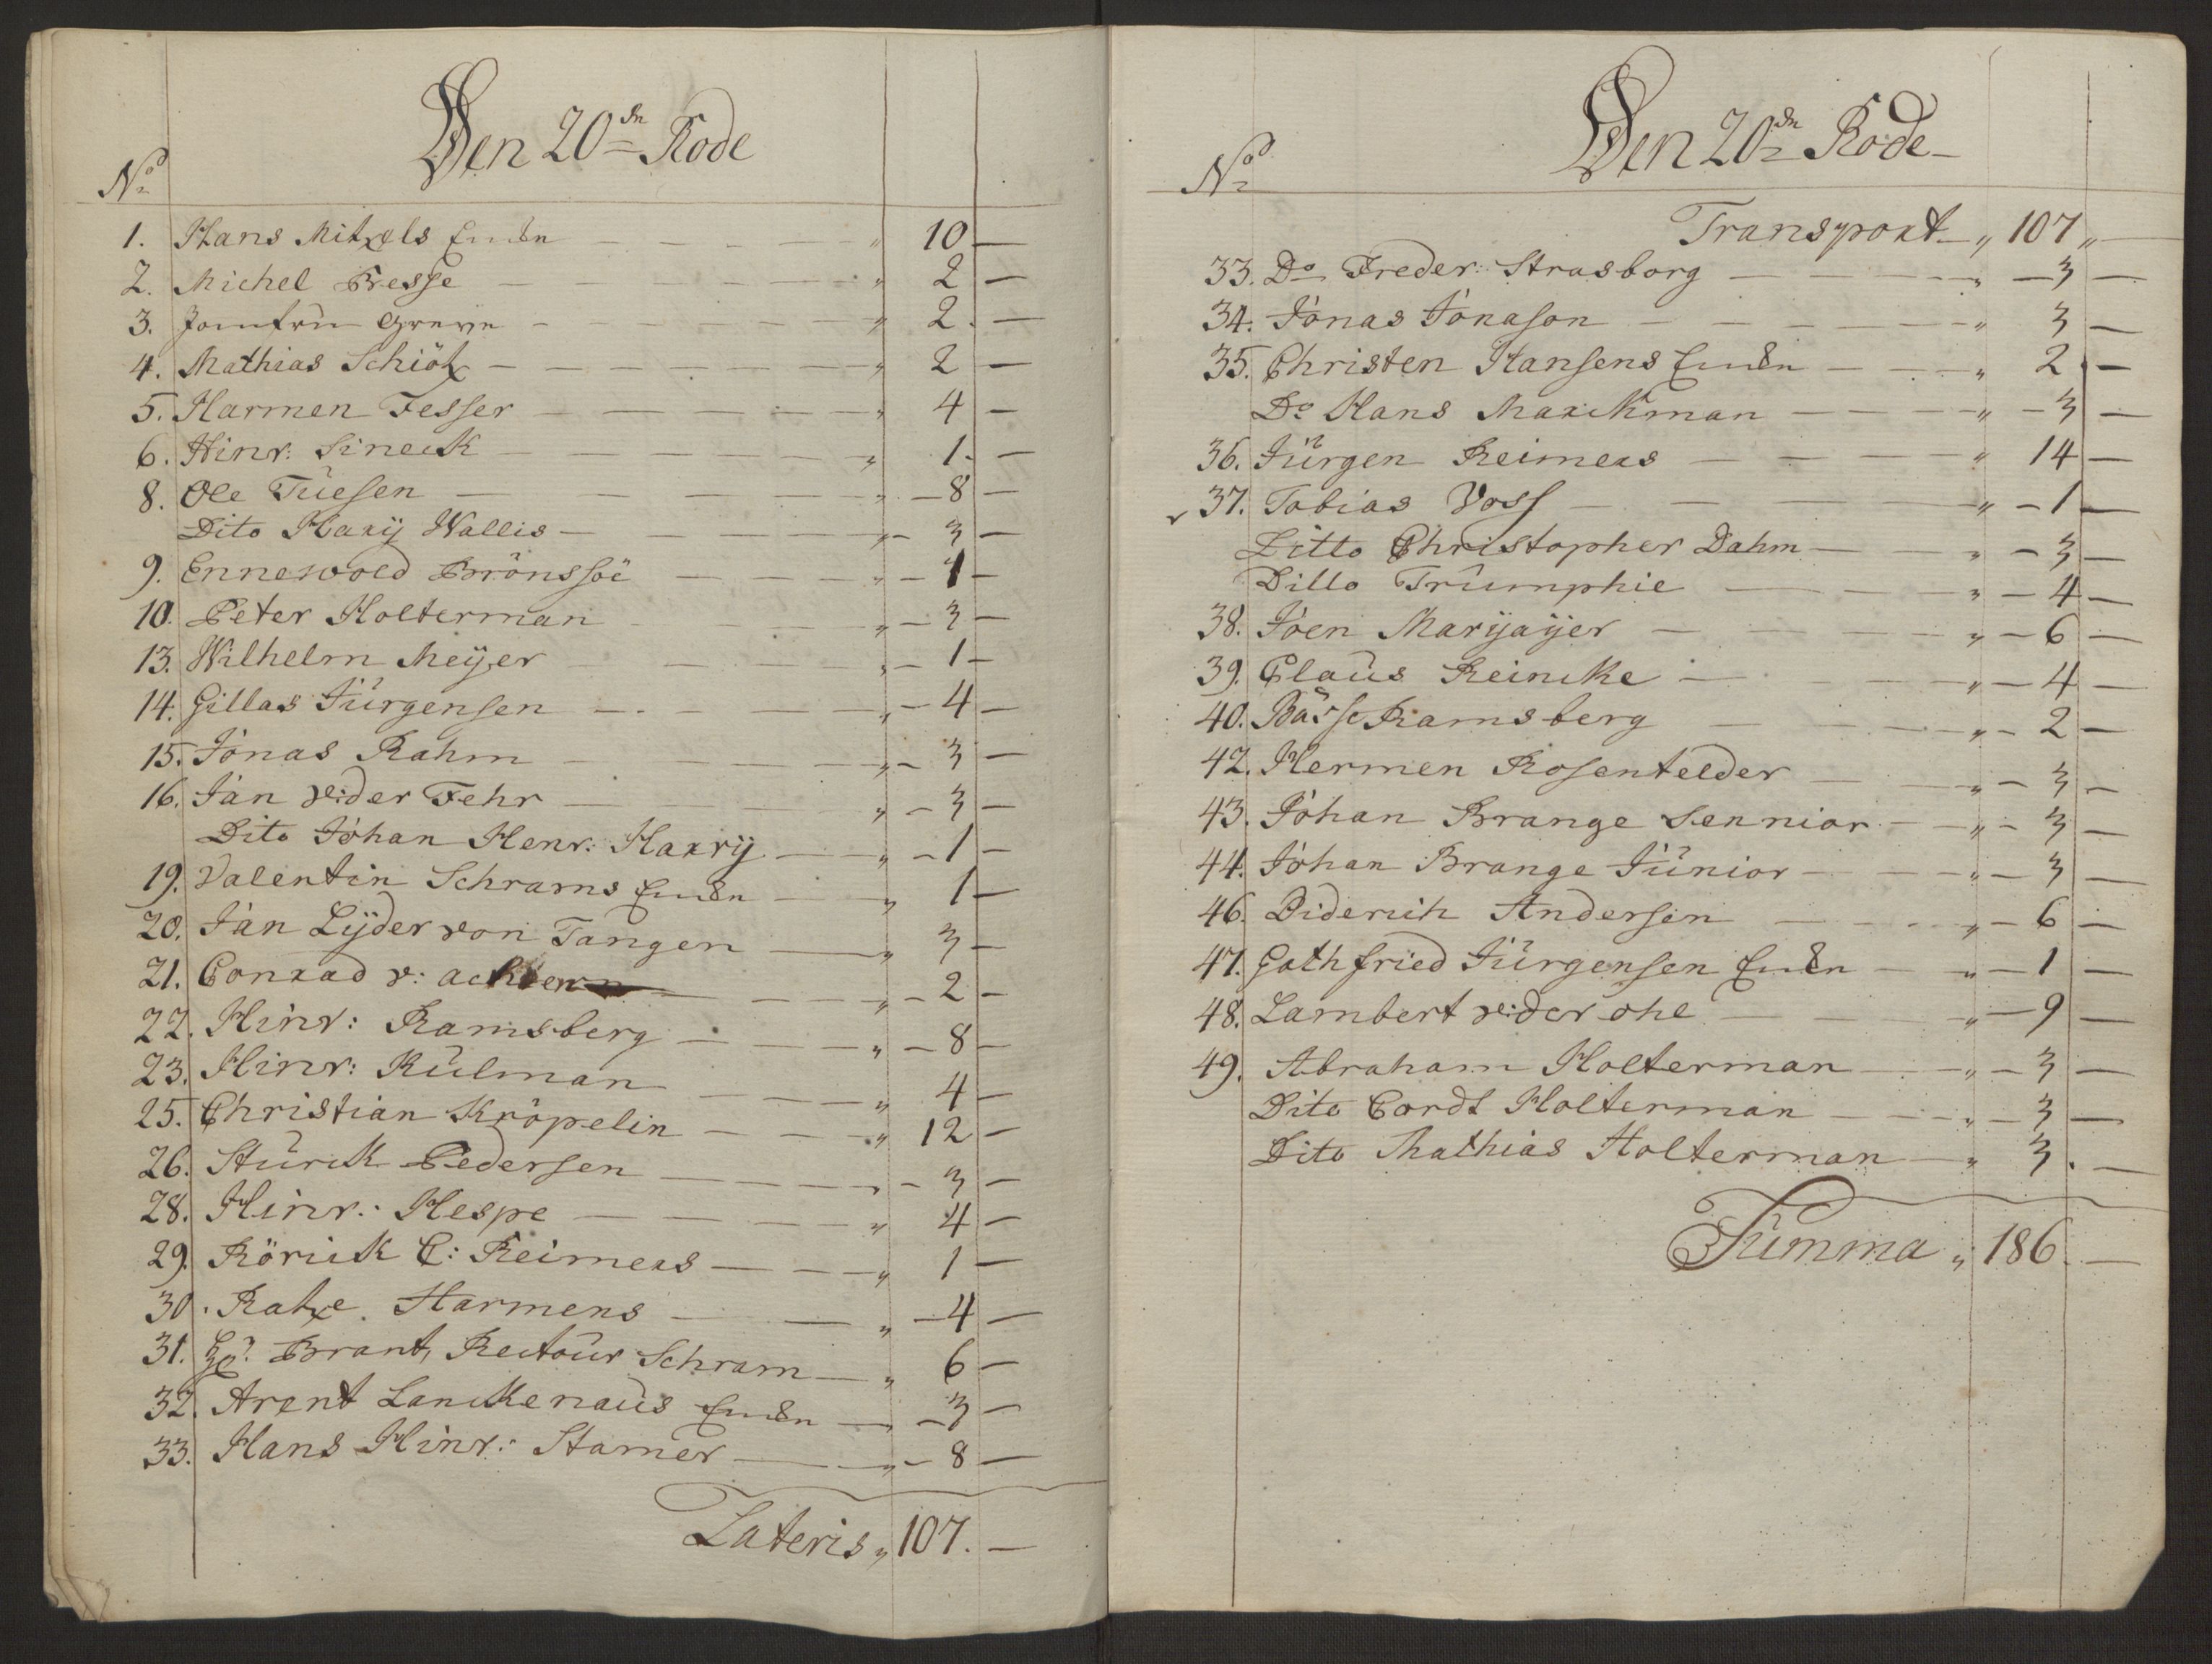 Den 20de Rode
No
1. Hans Mitzels Enche " 10 —
2. Michel Fresse " 2 —
3. Jomfru Greve " 2. —
4. Mathias Schiötz " 2 —
5. Harmen Fesser " 4 —
6. Hinr: Sineck " 1. —
8. Ole Tüesen " — 8 —
Dito Harij Wallis " — 3 —
9. Ennewold Brönssöe " — 1 —
10. Peter Holterman " — 3 —
13. Wilhelm Meijer " — 1 —
14. Gillas Jürgensen " — 4 —
15. Jonas Rahm " — 3 —
16. Jan v: der Fehr " — 3 —
Dito Johan Henr: Harrij " — 1 —
19. Valentin Schrams Enche " 1 —
20. Jan Lijder von Tangen " 3 —
21. Conrad v: achtern " — 2 —
22. Hinr: Ramsberg " — 8 —
23. Hinr: Kulman " 4 —
25. Christian Kröpelin " 12 —
26. Sturck Pedersen — 3 —
28. Hinr: Hespe " 4 —
29. Rörick C: Reimers " 1 —
30. Ratze Harmens " — 4 —
31. Brant, Rectour Schram " 6 —
32. Arent Lanckenaus Enche — 3 —
33. Hans Hinr: Stamer " — 8 —
Lateris " 107. —
Den 20de Rode
No
Transport " 107 " —
33. Do Freder: Strasborg " — 3 —
34. Jonas Jonason " 3 —
35. Christen Hansens Enche " 2 —
Do Hans Marckman " — 3 —
36. Jürgen Reimers " 14 —
37. Tobias Voss " — 1 —
Ditto Christopher Dahm " — 3 —
Ditto Trumphie " — 4 —
38. Joen Marijaijer " — 6 —
39. Claus Reincke " — 4 —
40. Basse Ramsberg " — 2 —
42. Hermen Rosentelder " — 3 —
43. Johan Brange Sennior " — 3 —
44. Johan Brange Junior " — 3 —
46. Diderich Andersen " — 6 —
47. Gothfried Jürgensen Enche " — 1 —
48. Lambert v: der ohe " — 9 —
49. Abraham Holterman " — 3 —
Dito Cordt Holterman " — 3 —
Dito Mathias Holterman " 3. —
Summa " 186. —